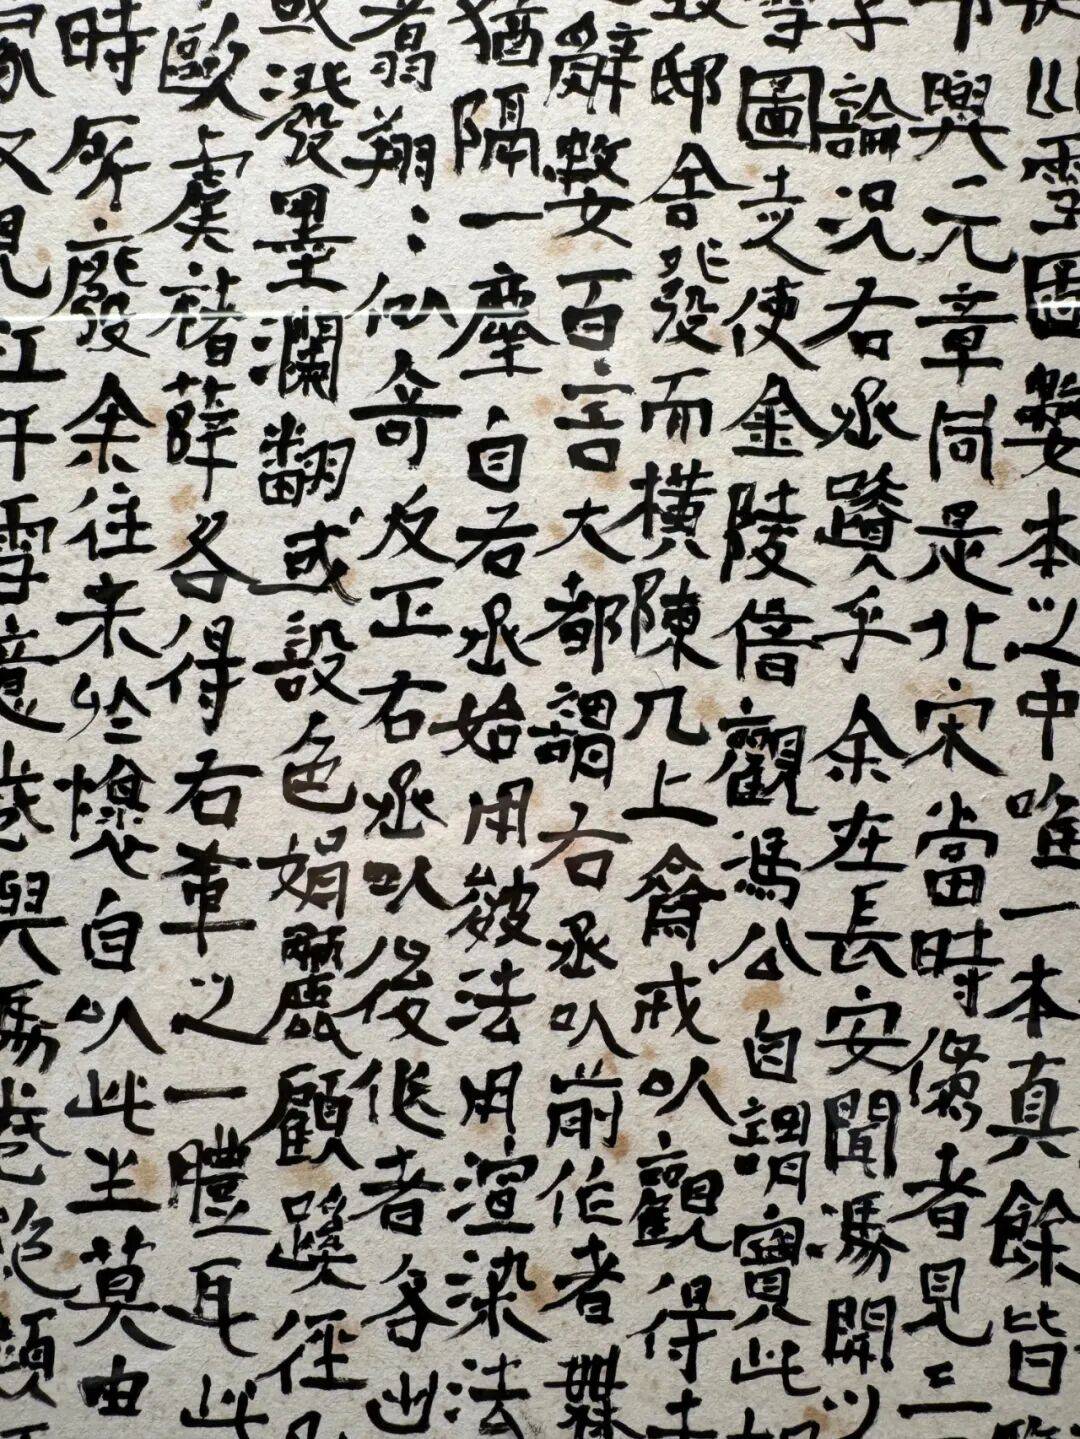 川雪圖數本之中唯一本真餘皆
與元章同是北宋當時偽者見三
論況右丞蹟乎余在長安聞馮開之
雪圖走使金陵借觀馮公自謂寶此如
邸舍發而橫陳几上齋戒以觀得未
辭數百言大都謂右丞以前作者無
猶隔一塵自右丞始用皴法用渲染法
翥翔〻似奇反正右丞以後作者各出
或潑墨瀾翻或設色娟麗顧蹊徑已
歐虞褚薛各得右軍之一體耳此
時所廢余往來於懷自以此生莫由
家又見江干雪意卷與馮卷絕類